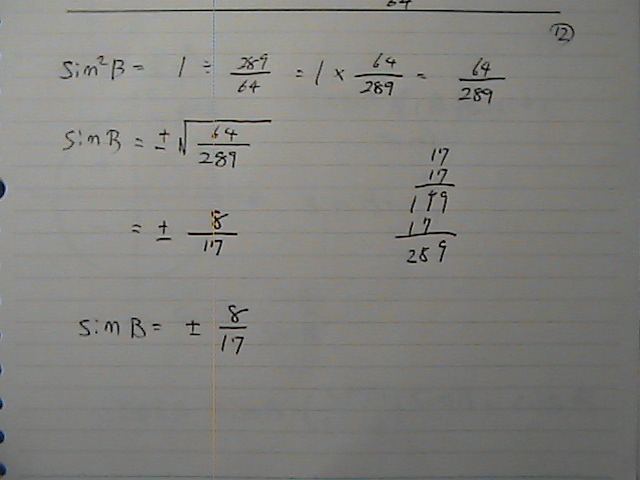 64
12
Sin²B = 1 ÷ 289/64 = 1 × 64/289 = 64/289
Sin B = ± √64/289
17
17
= ± 8/17
119
17
289
Sin B = ± 8/17